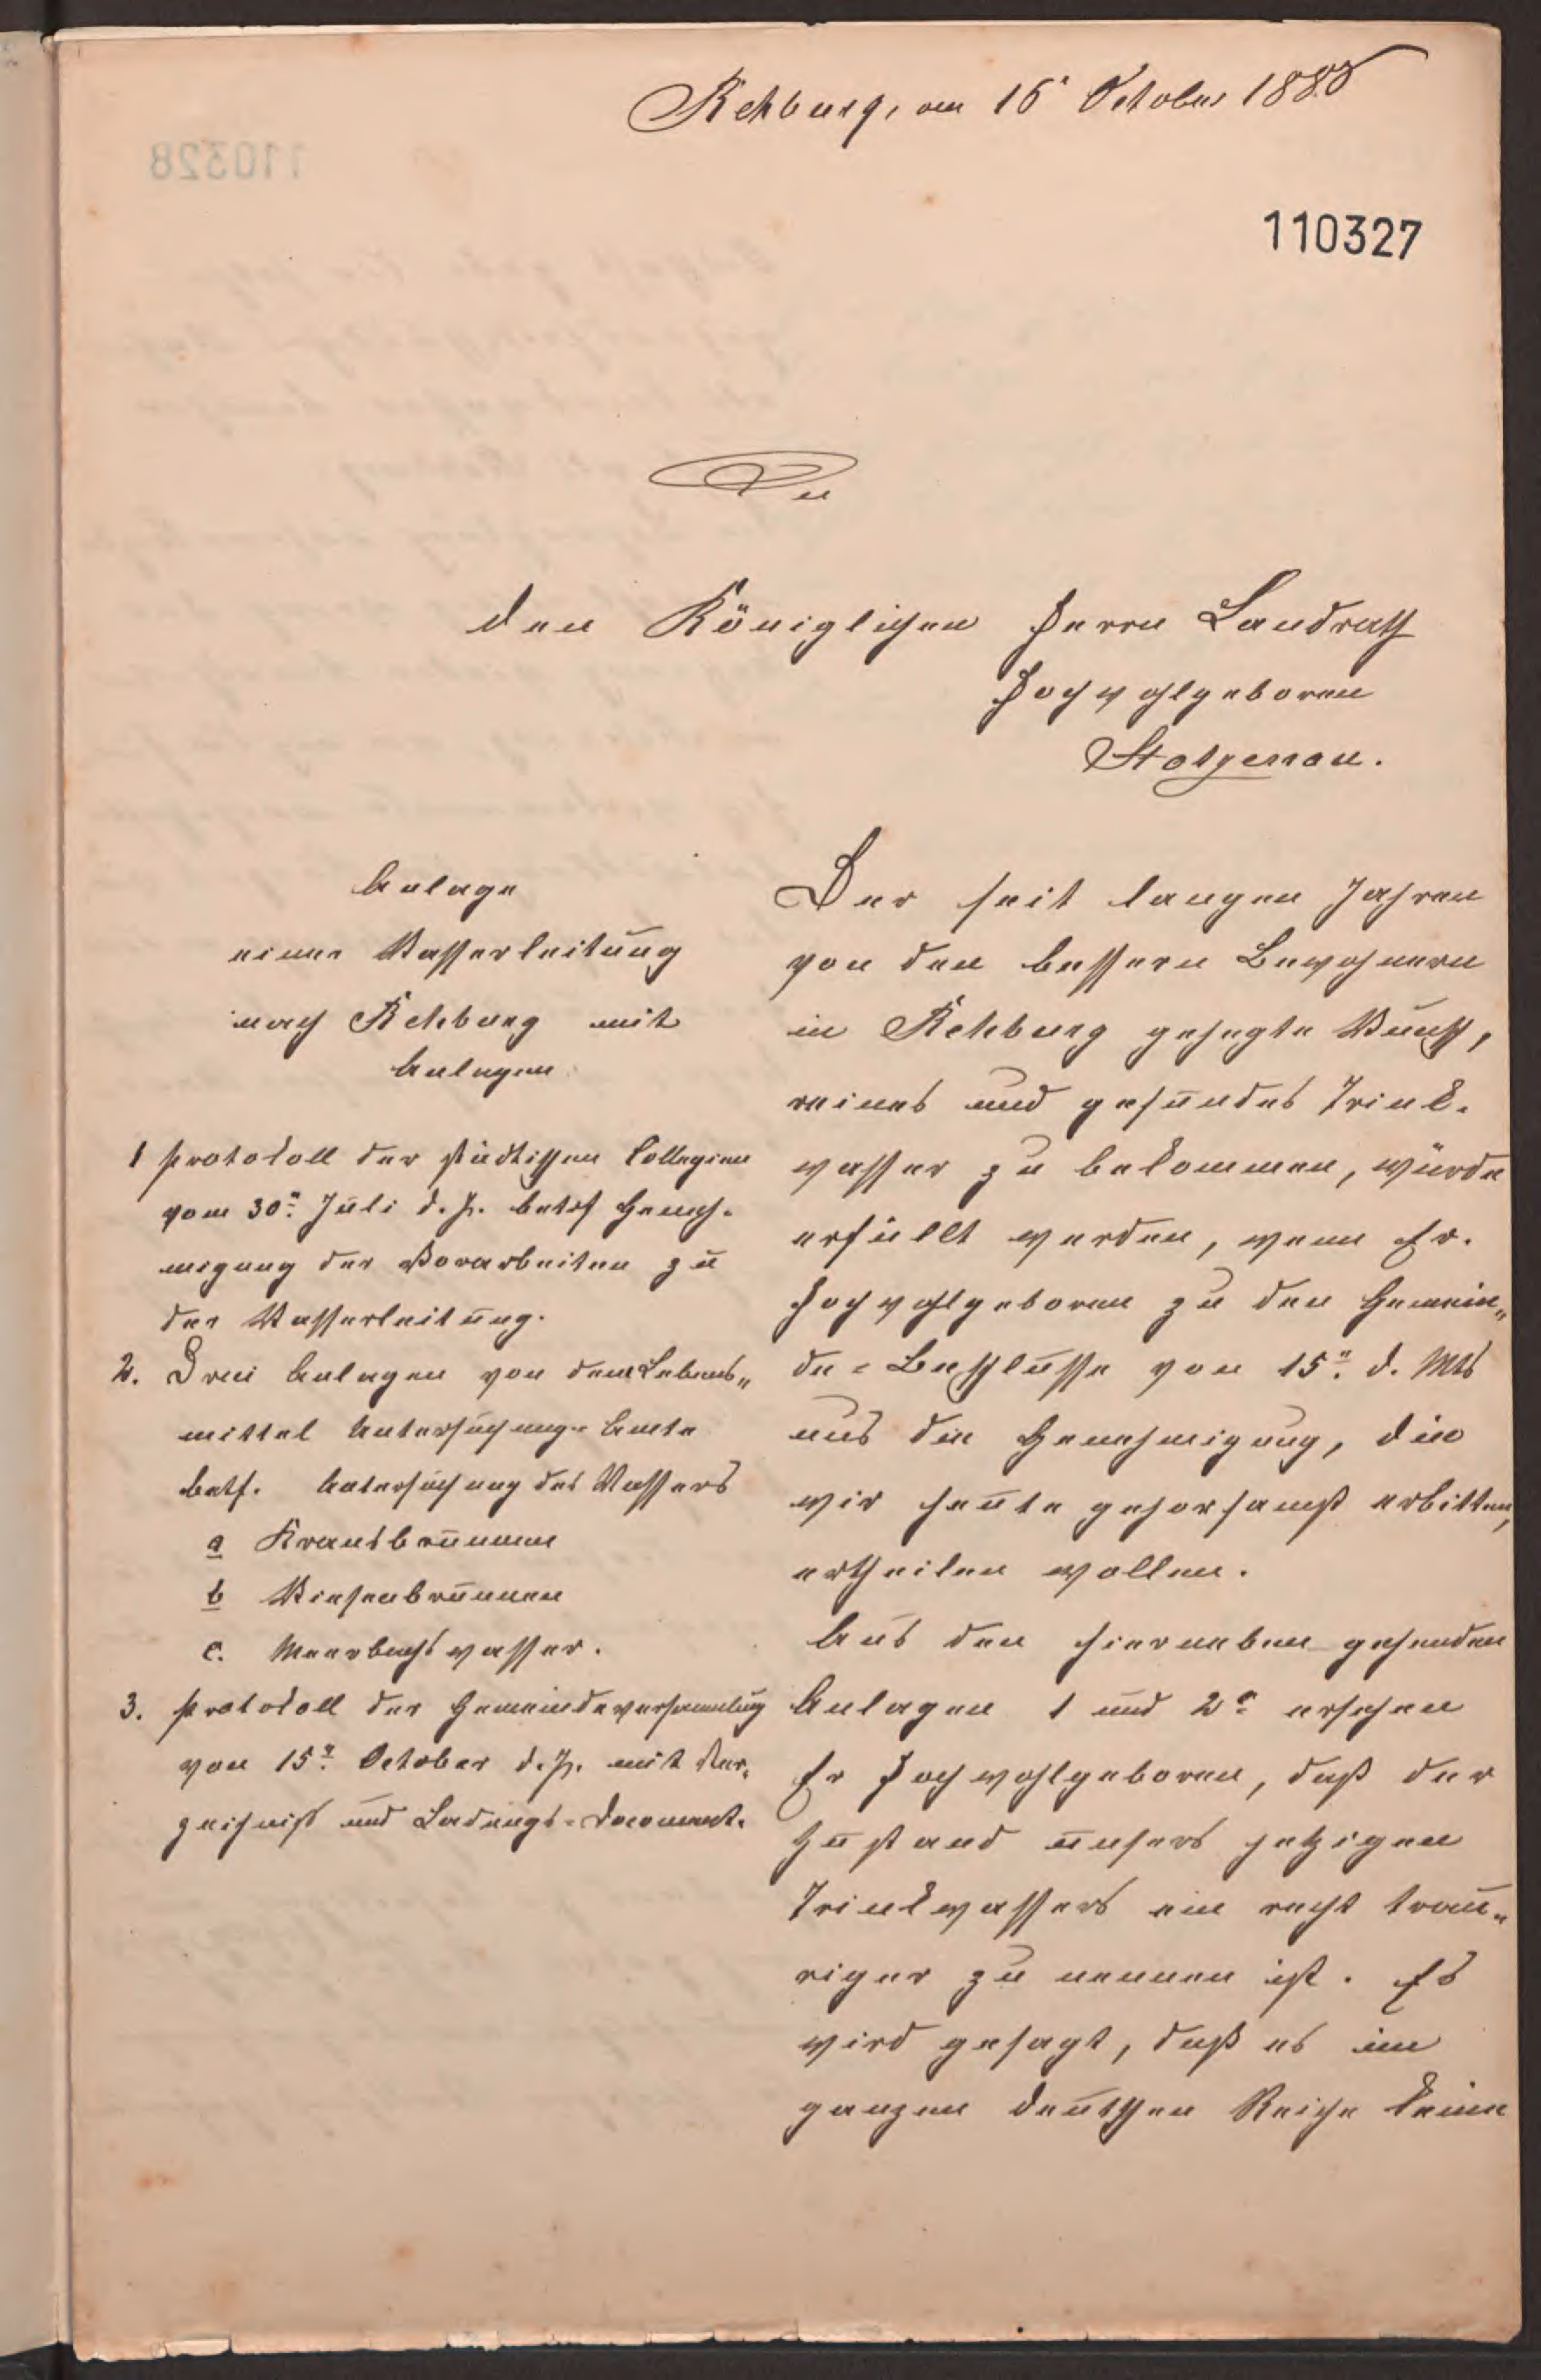 Rehburg, am 16' October 1885
110327
An
den Königlichen Herrn Landrath
Hochwohlgeboren
Stolzenau.
Anlage
einer Wasserleitung
nach Rehburg mit
Anlagen
1 Protokoll der städtischen Collegien
vom 30ⁿ. Juli d. J. betrf Geneh-
migung der Vorarbeiten zu
der Wasserleitung.
2. Drei Anlagen von dem Lebens„
mittel Untersuchungs Amte
betf. Untersuchung des Wassers
a Krautsbrunnen
b Wiesenbrunnen
c. Meerbachswasser.
3. Protokoll der Gemeindeversammlung
von 15ⁿ. October d. J. mit Ver-
zeichniß und Ladungs-Document.
Der seit langen Jahren
von den bessern Bewohnern
in Rehburg gehegte Wunsch,
reines und gesundes Trink-
wasser zu bekommen, würde
erfüllt werden, wenn Ew.
Hochwohlgeboren zu den Gemein„
de-Beschlusse von 15ⁿ. d. Mts
uns die Genehmigung, die
wir heute gehorsamst erbitten,
ertheilen wollen.
Aus den hierneben gehenden
Anlagen 1 und 2ᵃ ersehen
Ew Hochwohlgeboren, daß der
Zustand unsers jetzigen
Trinkwassers ein recht trau„
riger zu nennen ist. Es
wird gesagt, daß es im
ganzen deutschen Reiche keine